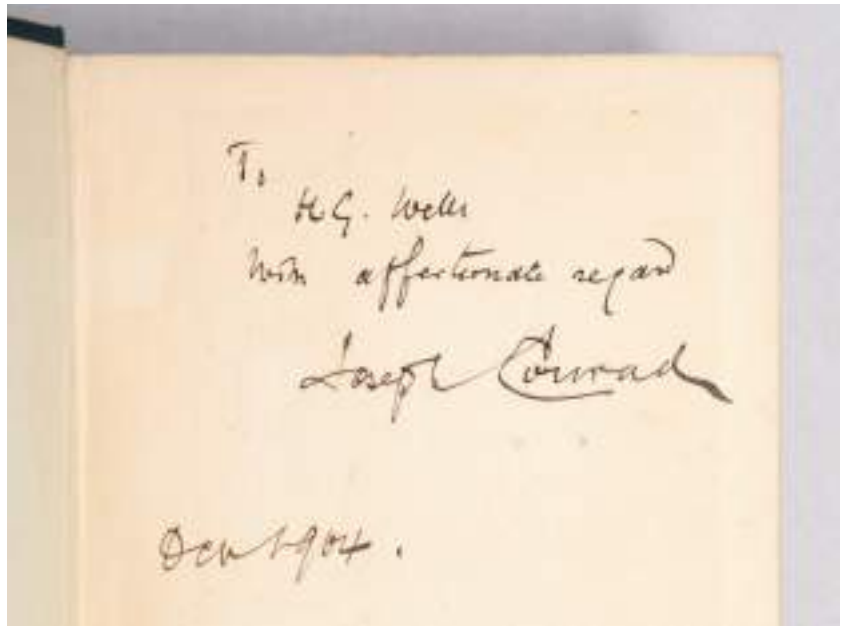 To
H.G. Wells
With affectionate regard
Joseph Conrad
Dec 1904.